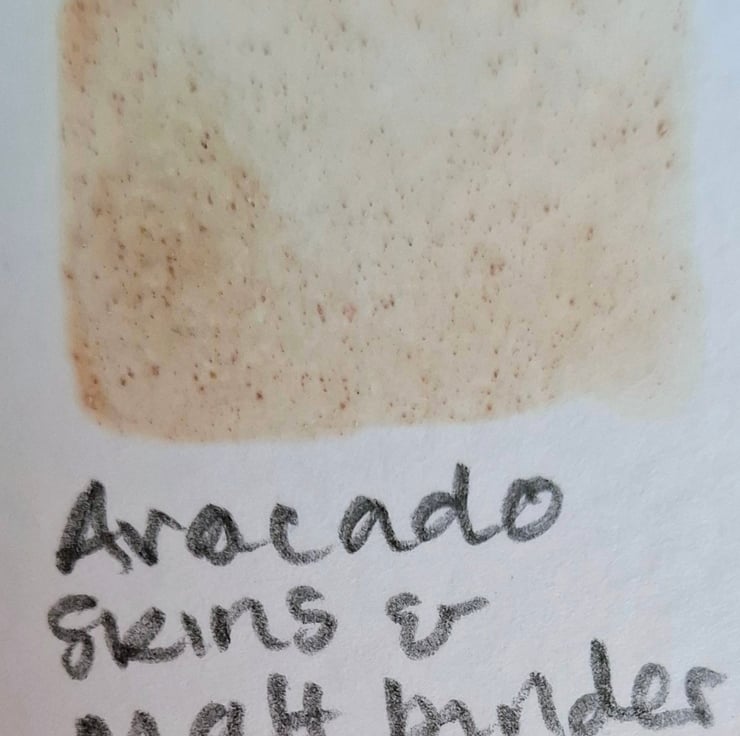 Avocado
skins &
Matt binder